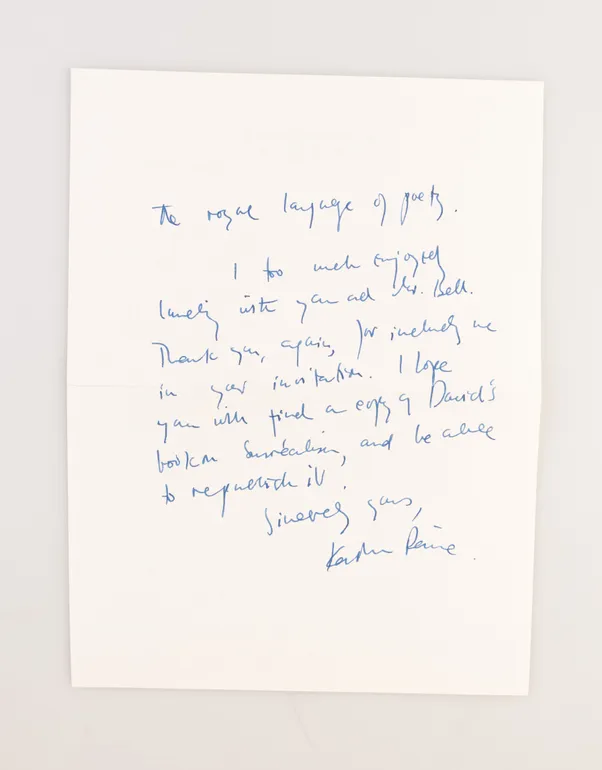 The royal language of poetry.
I too much enjoyed
lunching with you and Mr. Bell.
Thank you, again, for including me
in your invitation. I hope
you will find a copy of David's
book on Surrealism, and be able
to republish it.
Sincerely yours,
Kathleen Raine.